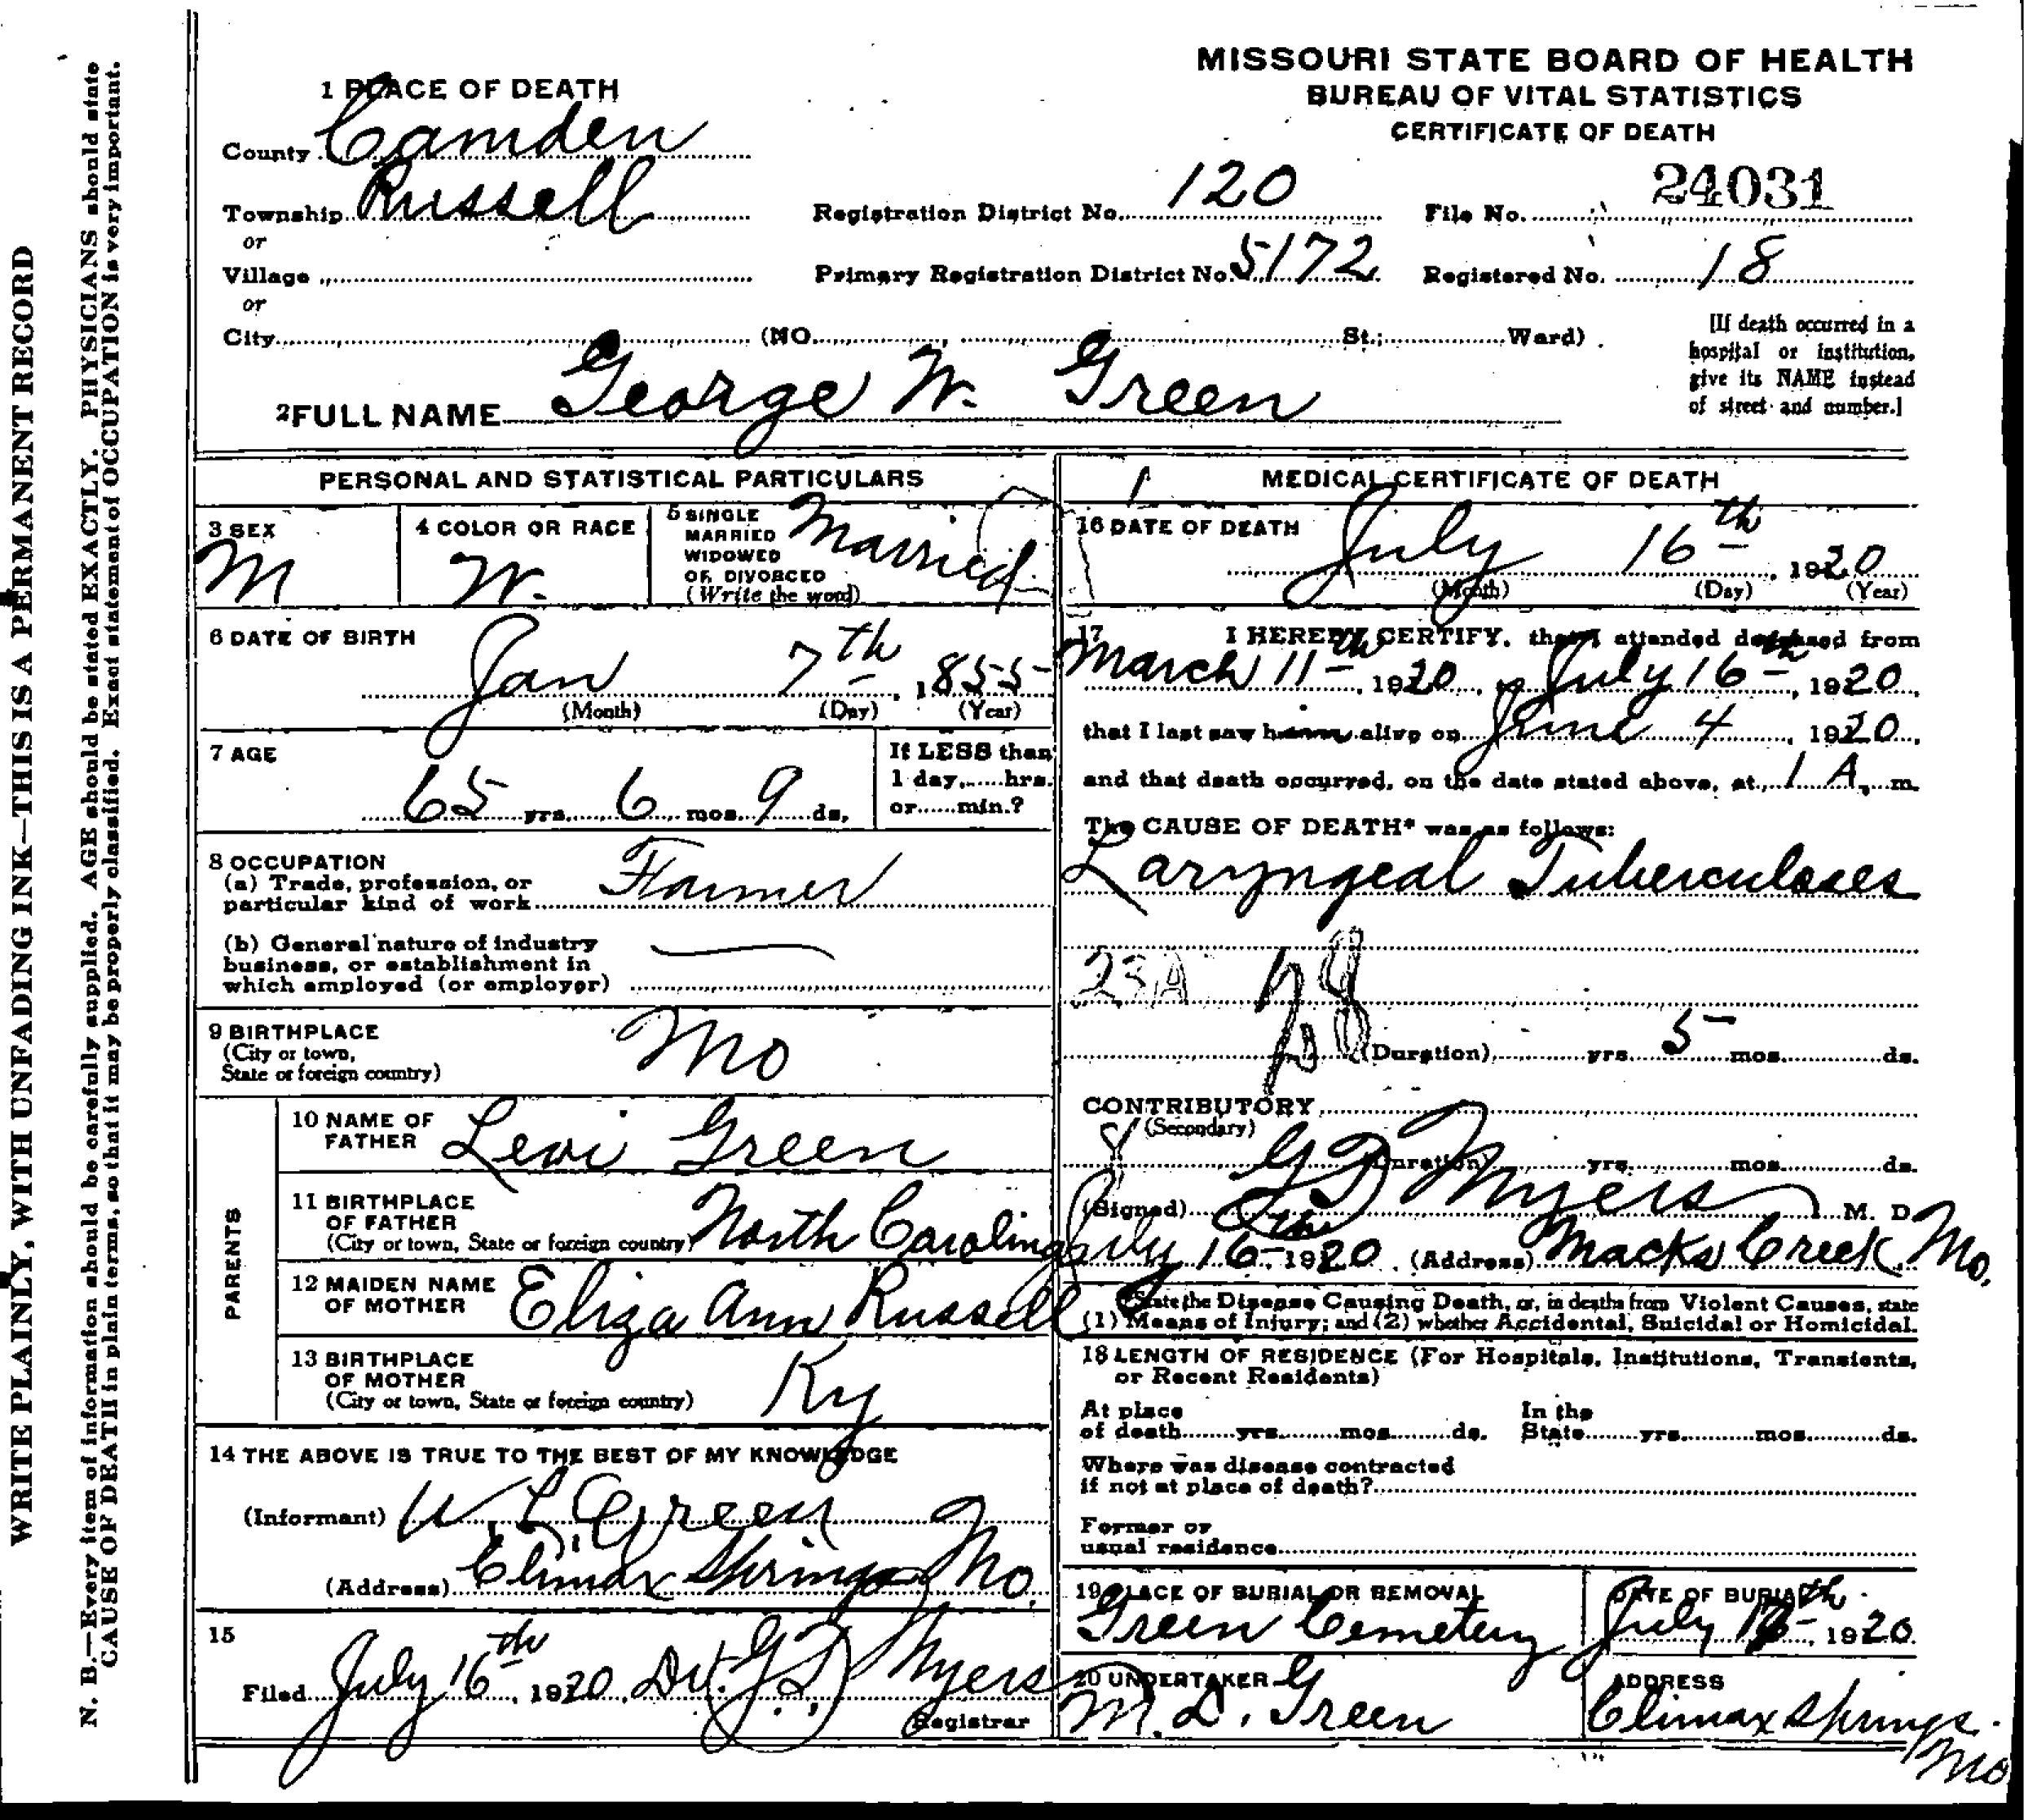 WRITE PLAINLY, WITH UNFADING INK—THIS IS A PERMANENT RECORD
N. B.—Every item of information should be carefully supplied. AGE should be stated EXACTLY. PHYSICIANS should state
CAUSE OF DEATH in plain terms, so that it may be properly classified. Exact statement of OCCUPATION is very important.
MISSOURI STATE BOARD OF HEALTH
BUREAU OF VITAL STATISTICS
CERTIFICATE OF DEATH
1 PLACE OF DEATH
County Camden
Township Russell
Registration District No. 120
File No. 24031
or
Village
Primary Registration District No. 5172
Registered No. 18
or
City (NO. St.; Ward)
[If death occurred in a
hospital or institution,
give its NAME instead
of street and number.]
2 FULL NAME George W. Green
PERSONAL AND STATISTICAL PARTICULARS
3 SEX
M
4 COLOR OR RACE
W.
5 SINGLE
MARRIED
WIDOWED
OR DIVORCED
(Write the word)
Married
6 DATE OF BIRTH
Jan 7th, 1855
(Month) (Day) (Year)
7 AGE
65 yrs. 6 mos. 9 ds.
If LESS than
1 day, hrs.
or min.?
8 OCCUPATION
(a) Trade, profession, or
particular kind of work Farmer
(b) General nature of industry
business, or establishment in
which employed (or employer)
9 BIRTHPLACE
(City or town,
State or foreign country)
Mo
PARENTS
10 NAME OF
FATHER Levi Green
11 BIRTHPLACE
OF FATHER
(City or town, State or foreign country) North Carolina
12 MAIDEN NAME
OF MOTHER Eliza Ann Russell
13 BIRTHPLACE
OF MOTHER
(City or town, State or foreign country) Ky
14 THE ABOVE IS TRUE TO THE BEST OF MY KNOWLEDGE
(Informant) W. L. Green
(Address) Climax Springs Mo.
15
Filed July 16th, 1920, Dr. G. D. Myers
Registrar
MEDICAL CERTIFICATE OF DEATH
16 DATE OF DEATH
July 16th, 1920
(Month) (Day) (Year)
17 I HEREBY CERTIFY, that I attended deceased from
March 11th, 1920, to July 16th, 1920,
that I last saw him alive on June 4, 1920,
and that death occurred, on the date stated above, at 1 A. m.
The CAUSE OF DEATH* was as follows:
Laryngeal Tuberculoses
23A 28
(Duration) yrs. 5 mos. ds.
CONTRIBUTORY
(Secondary)
(Duration) yrs. mos. ds.
(Signed) G D Myers M. D.
July 16th 1920 (Address) Macks Creek, Mo.
*State the Disease Causing Death, or, in deaths from Violent Causes, state
(1) Means of Injury; and (2) whether Accidental, Suicidal or Homicidal.
18 LENGTH OF RESIDENCE (For Hospitals, Institutions, Transients,
or Recent Residents)
At place
of death yrs. mos. ds.
In the
State yrs. mos. ds.
Where was disease contracted
if not at place of death?
Former or
usual residence
19 PLACE OF BURIAL OR REMOVAL
Green Cemetery
DATE OF BURIAL
July th, 1920
20 UNDERTAKER
M. D. Green
ADDRESS
Climax Springs.
Mo